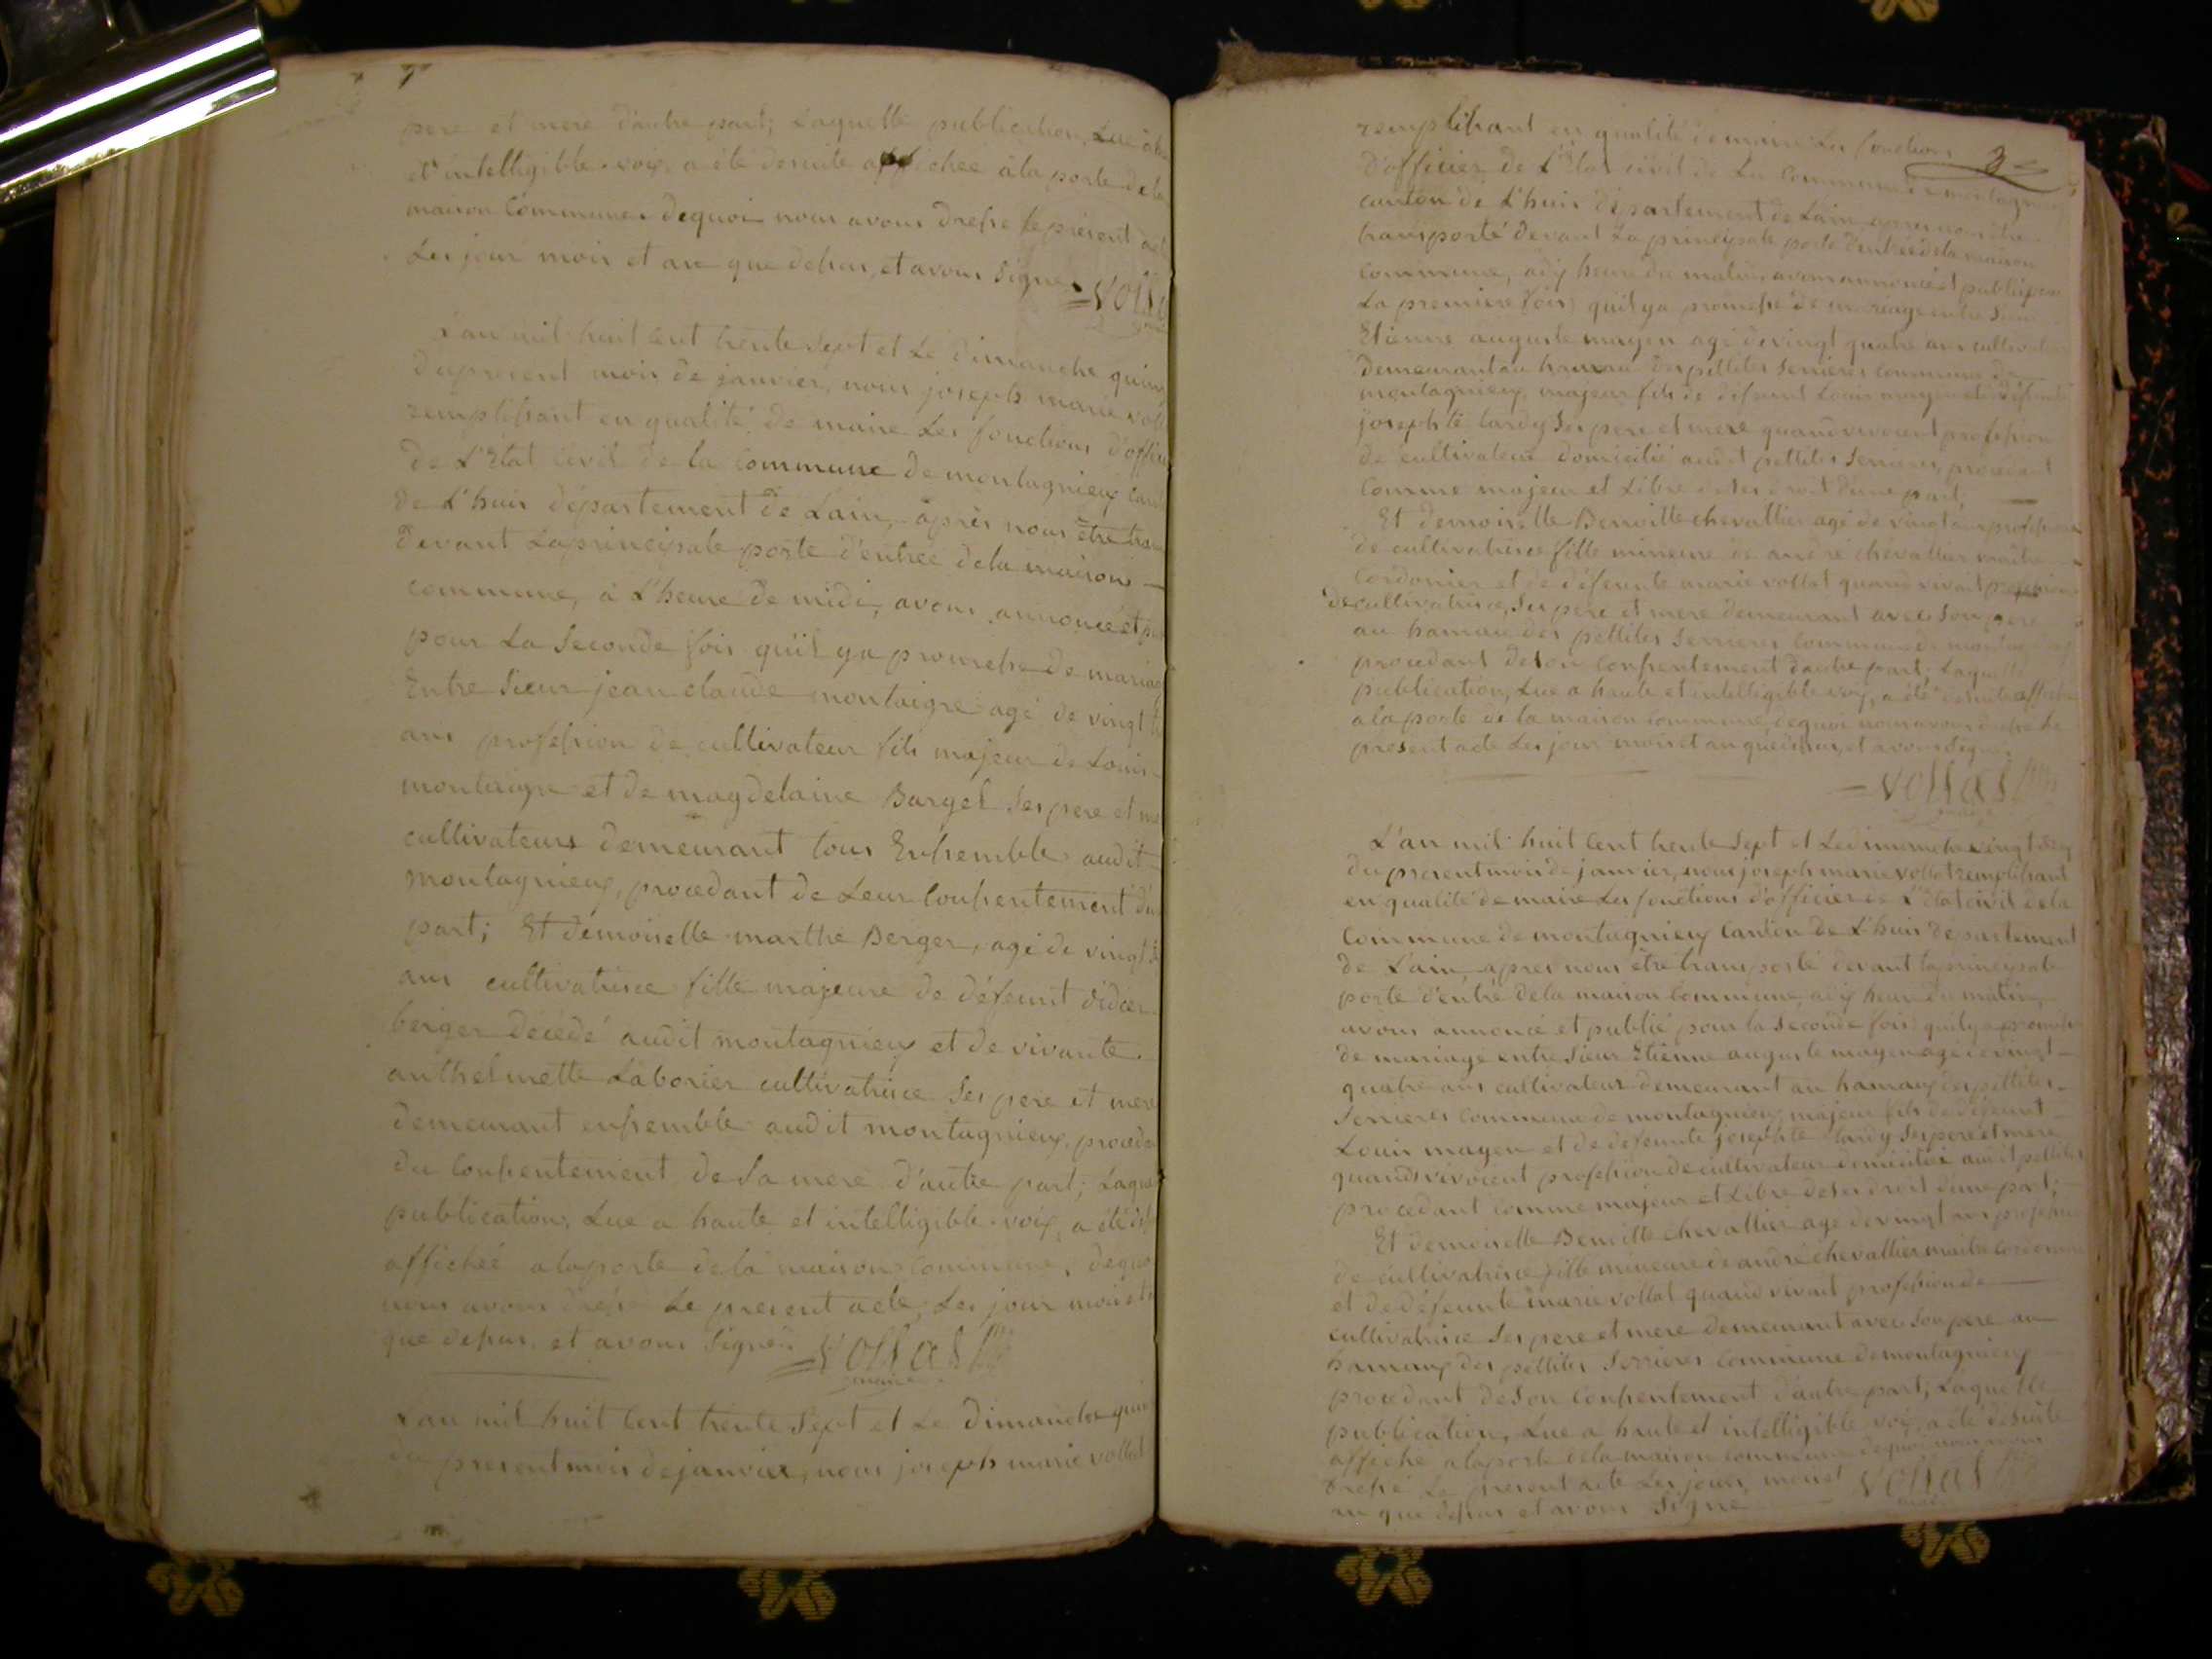 pere et mere d'autre part; Laquelle publication, Lue à
et intelligible voix, a été desuite affichée à la porte de la
maison Commune. dequoi nous avons drefsé le présent
Les jour mois et an que defsus, et avons Signé.
vollat
L'an mil huit Cent trente Sept et Le dimanche
du present mois de janvier, nous joseph marie
remplifsant en qualité de maire Les fonctions
de L'Etat Civil de la Commune de montagnieux
de L'huis département de Lain, après nous être
devant Laprincipale porte d'entrée dela maison
commune, à L'heure de midi, avons annoncé et
pour La Seconde fois quil ya promefse de
Entre Sieur jean claude montaigre agé de vingt
ans profefsion de cultivateur fils majeur de Louis
montaigre et de magdelaine Barget Ses pere et
cultivateurs demeurant tous Enfsemble audit
montagnieux, procedant de Leur Confsentement
part; Et démoiselle marthe Berger, agé de vingt
ans cultivatrice fille majeure de défeunt didier
berger décédé audit montagnieux et de vivante
anthelmette Laborier cultivatrice Ses pere et mere
demeurant enfsemble audit montagnieux,
du Confsentement de Sa mere d'autre part;
publication, Lue a haute et intelligible voix, a été
affichée alaporte dela maison Commune,
nous avons drefsé Le present acte, Les jour mois
que defsus, et avons Signé.
vollat
maire
L'an mil huit Cent trente Sept et Le Dimanche
du present mois de janvier, nous joseph marie vollat
3
remplifsant en qualité de maire Les fonctions
D'officier de L'Etat civil de La Commune de montagnieux
canton de L'huis département de Lain après nous être
transporté devant La principale porte dentrée dela maison
Commune, a dix heure du matin, avons annoncé et publié
La premiere fois quil ya promefse de mariage entre Sieur
Etienne auguste mayen agé de vingt quatre ans
demeurant au hameau des pettites Serrieres Commune de
montagnieux, majeur fils de défeunt Louis mayen et de
josephte tardy Ses pere et mere quand vivoient profefsion
de cultivateur domicilié audit pettites Serrieres, procedant
Comme majeur et Libre de Ses droit dune part,
Et demoiselle Benoitte chevallier agé de vingt ans profefsion
de cultivatrice fille mineure de andré chevallier maitre
Cordonier et de défeunte marie vollat quand vivoit profefsion
de cultivatrice, Ses pere et mere demeurant avec Son pere
au hamau des pettites Serrieres Commune de
procedant deSon Confsentement dautre part; Laquelle
publication, Lue a haute et intelligible voix, a été desuite
a laporte de la maison Commune, dequoi nous avons drefsé Le
present acte Les jour mois et an que defsus, et avons Signé
vollat
L'an mil huit Cent trente Sept et Le dimanche vingt
du present mois de janvier, nous joseph marie vollat remplifsant
en qualité de maire Les fonctions d'officier de L'Etat civil dela
Commune de montagnieux Canton de L'huis departement
de Lain, apres nous être transporté devant la principale
porte d'entré dela maison Commune, a dix heur du matin,
avons annoncé et publié pour la Seconde fois quil ya promefse
de mariage entre Sieur Etienne auguste mayen agé de vingt
quatre ans cultivateur demeurant au hamaux des pettites
Serrieres Commune de montagnieux, majeur fils de défeunt
Louis mayen et de defeunte josephte tardy Ses pere et mere
quand vivoient profefsion de cultivateur domicilié audit pettites
procedant comme majeur et Libre deSes droit dune part;
Et demoiselle Benoitte chevallier age de vingt ans profefsion
de cultivatrice fille mineure de andré chevallier maitre
et de défeunte marie vollat quand vivoit profefsion de
cultivatrice Ses pere et mere demeurant avec Son pere au
hamaux des pettites Serrieres Commune de montagnieux
procedant deSon Confsentement d'autre part; Laquelle
publication, Lue a haute et intelligible voix, a été deSuite
affiché alaporte dela maison Commune dequoi nous avons
drefsé Le present acte Les jour, mois et
an que defsus et avons Signé
vollat